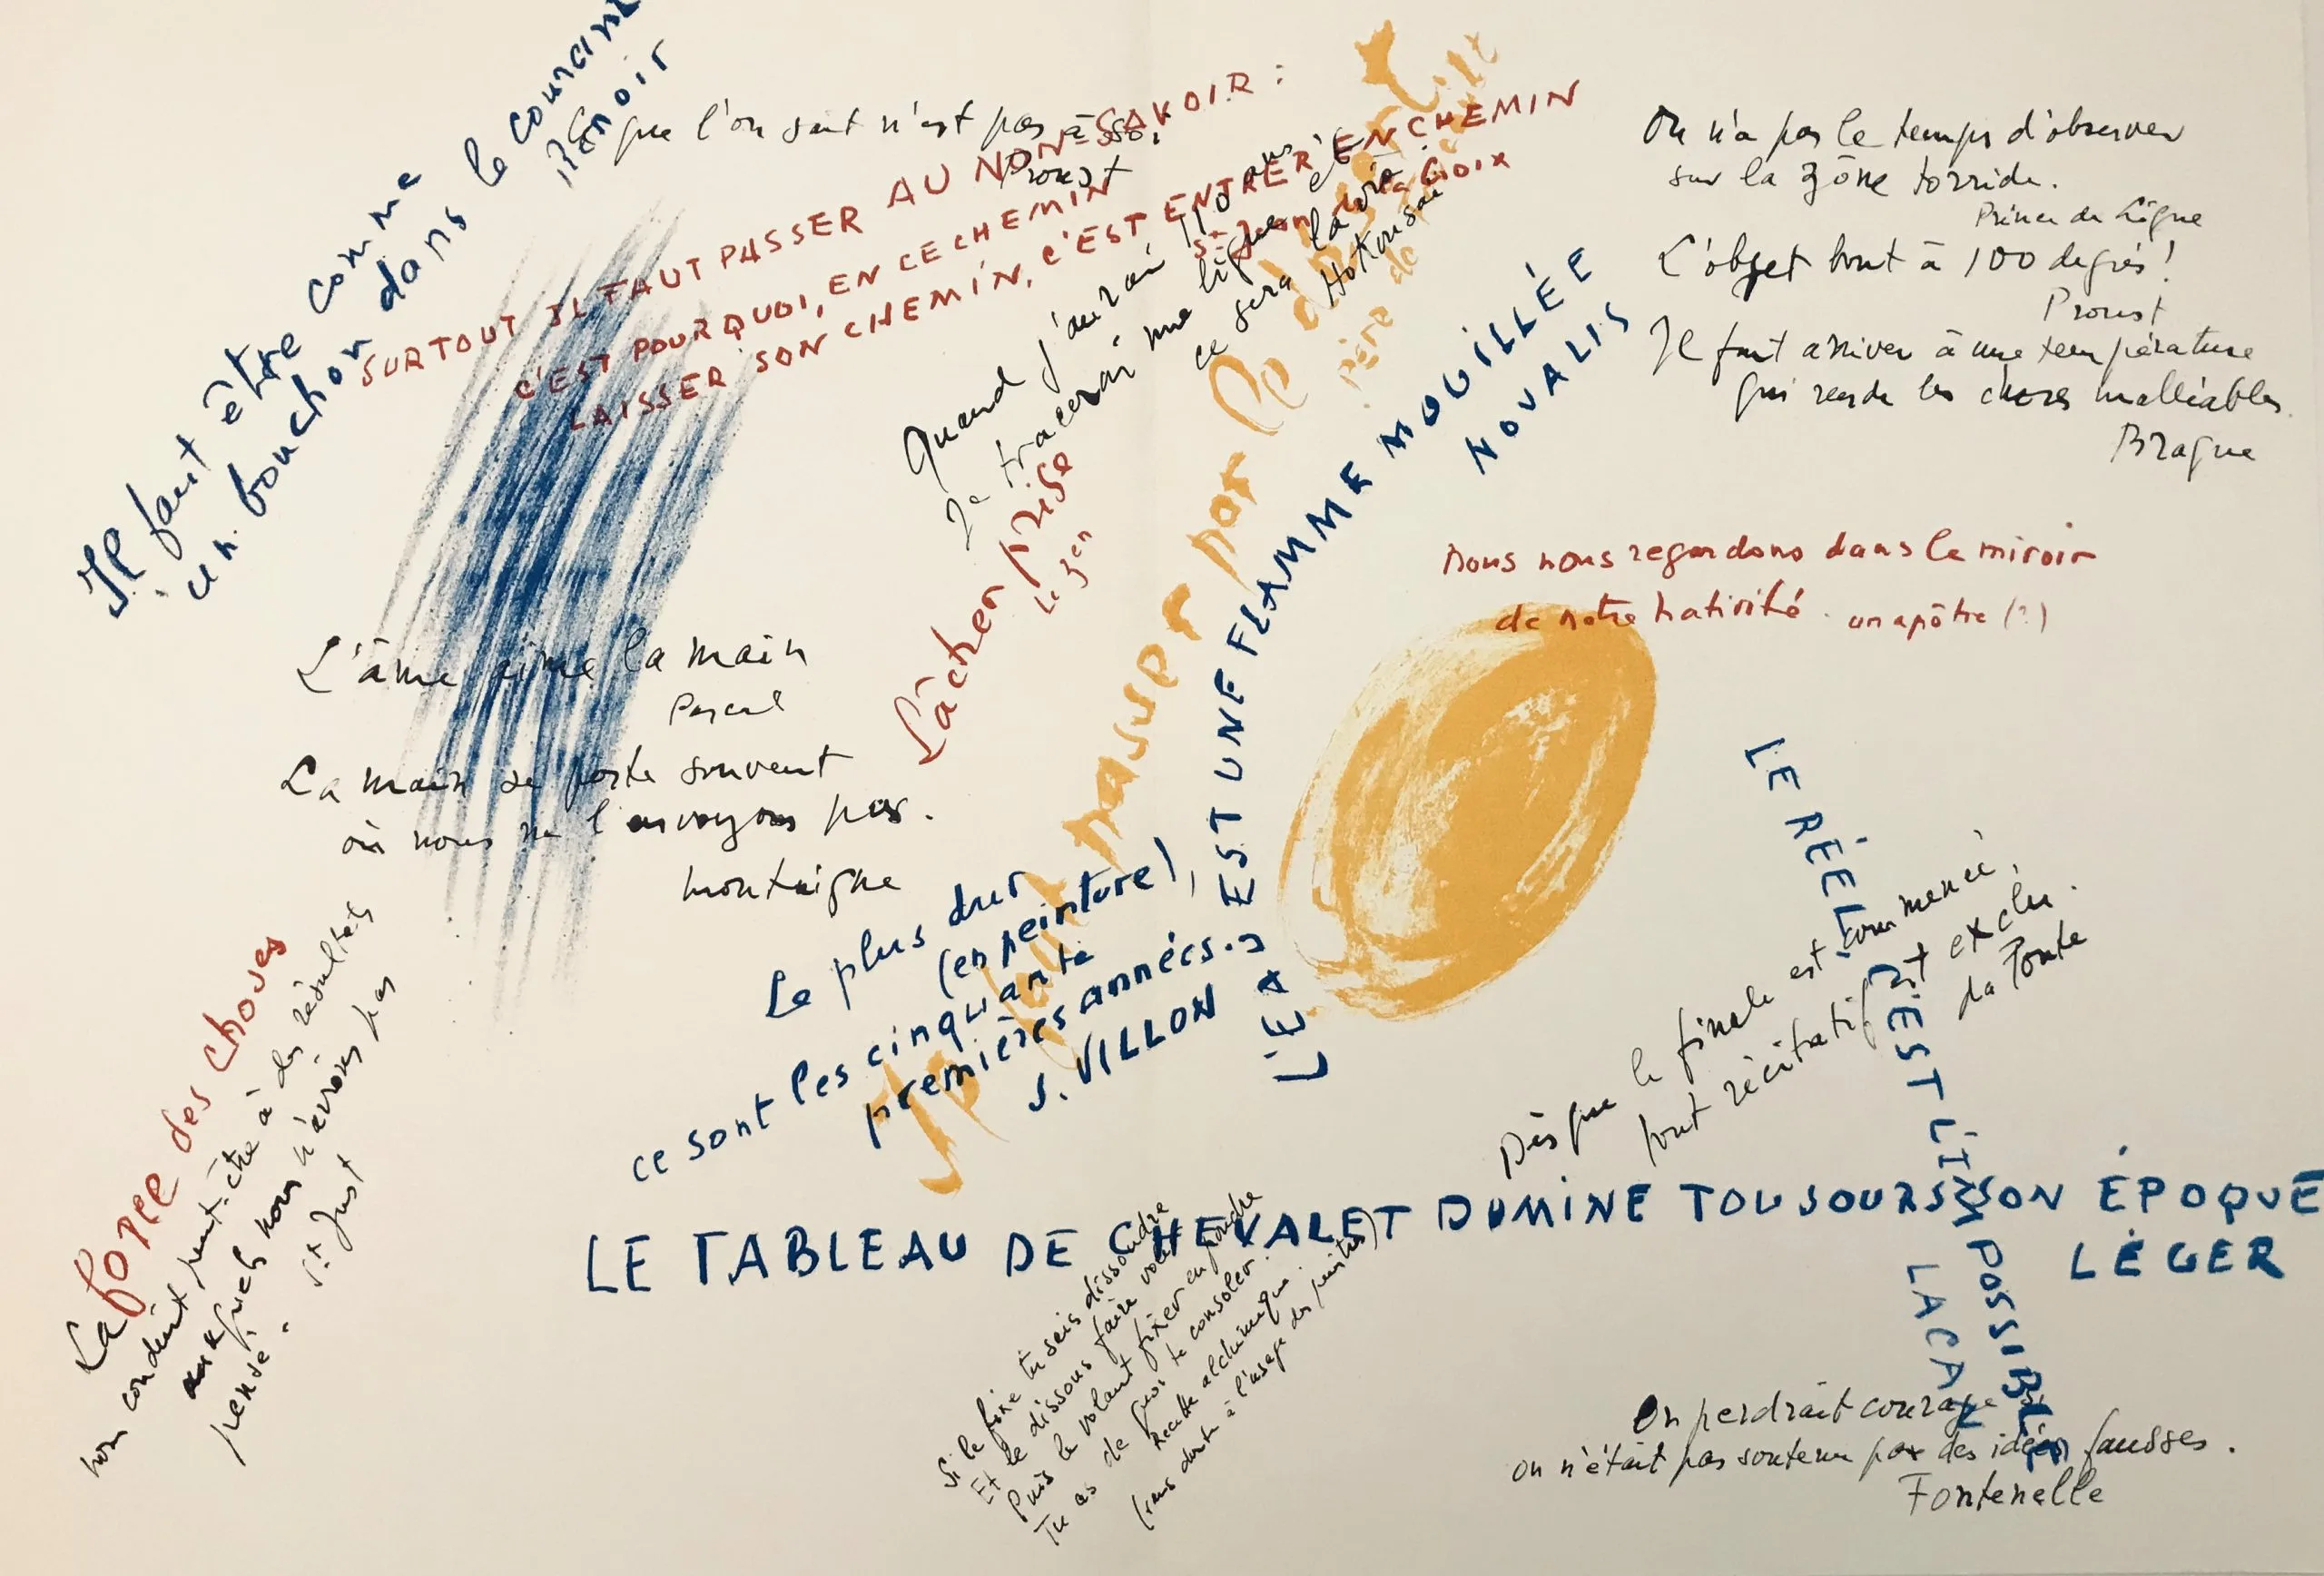 Il faut être comme
un bouchon dans le courant
Renoir
Ce que l'on sait n'est pas à soi
Proust
SURTOUT IL FAUT PASSER AU NON-SAVOIR :
C'EST POURQUOI, EN CE CHEMIN
LAISSER SON CHEMIN, C'EST ENTRER EN CHEMIN
St Jean de la Croix
Quand j'aurai 110 ans
Je tracerai une ligne et
ce sera la vie.
Hokusai
On n'a pas le temps d'observer
sur la zône torride.
Prince de Ligne
L'objet bout à 100 degrés !
Proust
Il faut arriver à une température
qui rende les choses malléables.
Braque
Lâcher prise
Le zen
Il faut passer par le
Père de
L'EAU EST UNE FLAMME MOUILLÉE
NOVALIS
Nous nous regardons dans le miroir
de notre nativité. un apôtre (?)
L'âme aime la main
Pascal
La main se porte souvent
où nous ne l'envoyons pas.
Montaigne
Le plus dur
(en peinture),
ce sont les cinquante
premières années.
J. VILLON
LE RÉEL C'EST L'IMPOSSIBLE
LACAN
Dès que le finale est commencé,
tout récitatif est exclu.
Da Ponte
La force des choses
nous conduit peut-être à des résultats
auxquels nous n'avions pas
pensé.
St Just
LE TABLEAU DE CHEVALET DOMINE TOUJOURS SON ÉPOQUE
LÉGER
Si le fixe tu sais dissoudre
Et le dissous faire voler
Puis le volant fixer en poudre
Tu as de quoi te consoler.
Recette alchimique.
(sans doute à l'usage des peintres)
On perdrait courage si
on n'était pas soutenu par des idées fausses.
Fontenelle